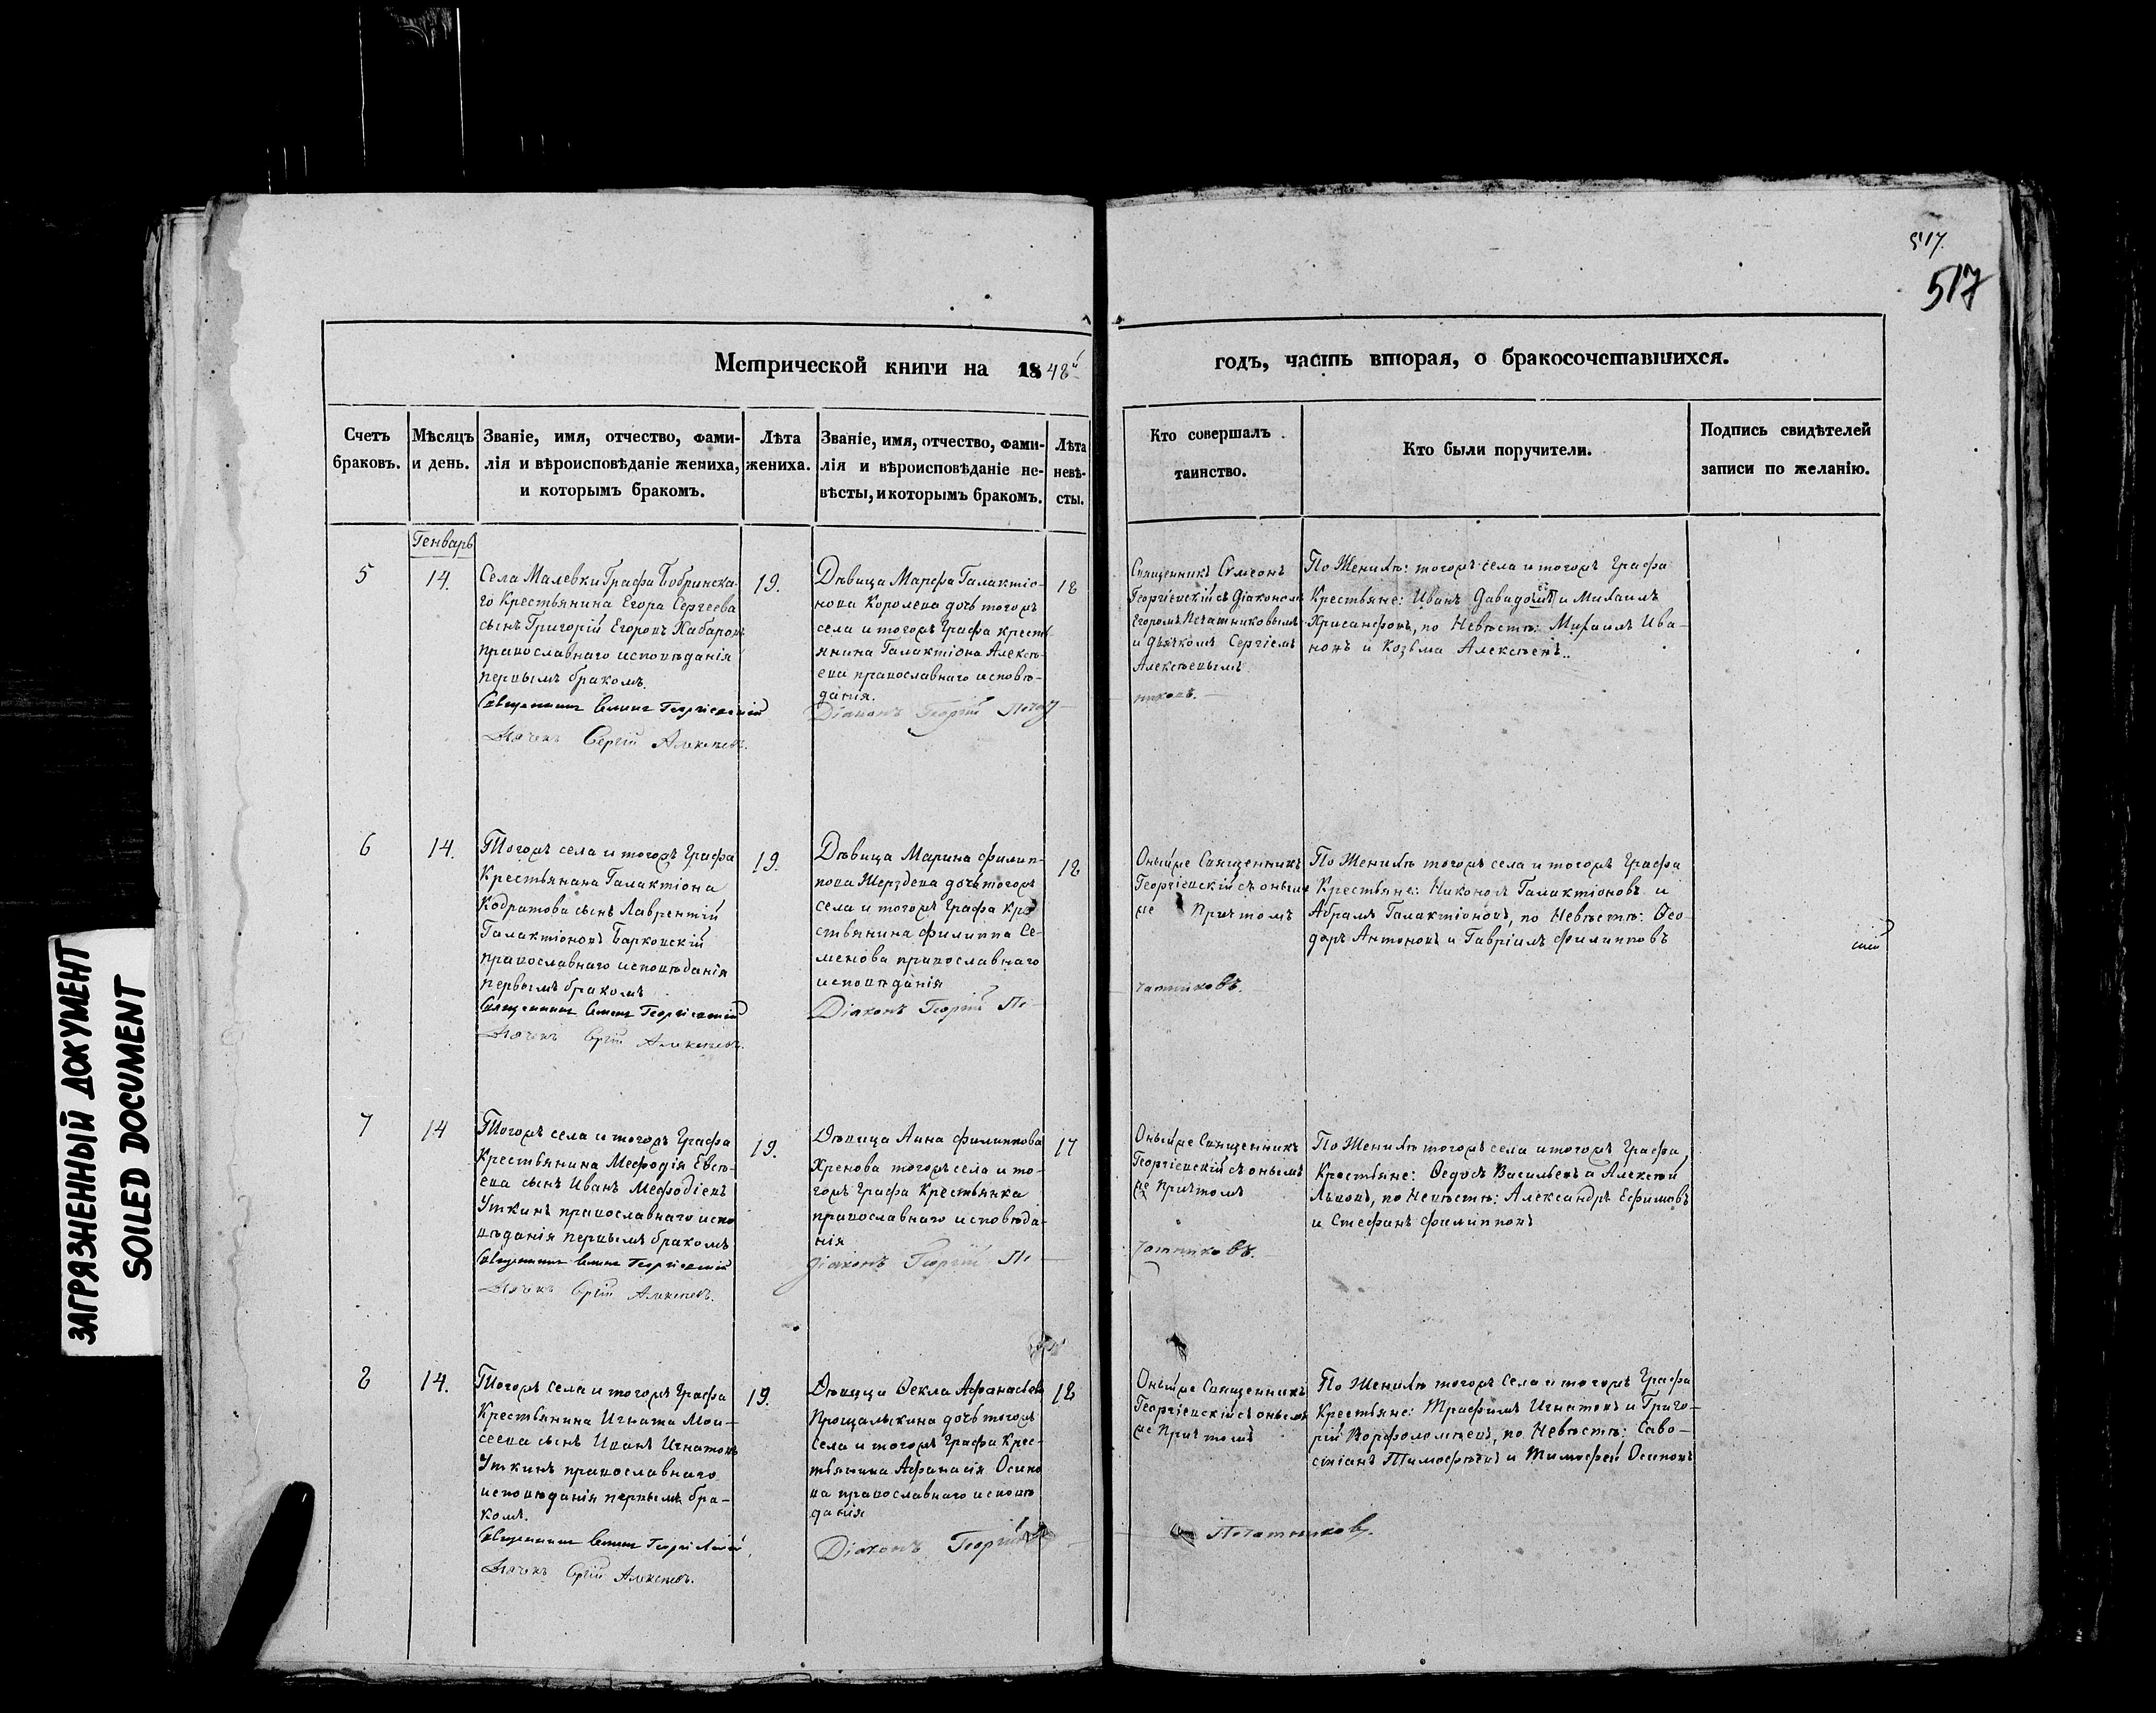 517.
517
Метрической книги на 1848й
годъ, часть вторая, о бракосочетавшихся.
Счетъ
браковъ.
Мѣсяцъ
и день.
Званіе, имя, отчество, фами-
лія и вѣроисповѣданіе жениха,
и которымъ бракомъ.
Лѣта
жениха.
Званіе, имя, отчество, фами-
лія и вѣроисповѣданіе не-
вѣсты, и которымъ бракомъ.
Лѣта
невѣ-
сты.
Кто совершалъ
таинство.
Кто были поручители.
Подпись свидѣтелей
записи по желанію.
Генварь
5
14.
Села Малевки Графа Бобринска-
го Крестьянина Егора Сергеева
сынъ Григорій Егоровъ Хабаровъ
православнаго исповѣданія
первымъ бракомъ.
Священникъ Симеонъ Георгіевскій
Дьячекъ Сергій Алексѣевъ.
19.
Дѣвица Марфа Галактіо-
нова Королева дочь тогожъ
села и тогожъ Графа кресть-
янина Галактіона Алексѣ-
ева православнаго исповѣ-
данія.
Діаконъ Георгій Печат
18
Священникъ Симеонъ
Георгіевскій съ діакономъ
Егоромъ Печатниковымъ
и дьячкомъ Сергіемъ
Алексѣевымъ
никовъ.
По Женихѣ: тогожъ села и тогожъ Графа
Крестьяне: Иванъ Давидовъ и Михаилъ
Хрисанфовъ, по Невѣстѣ: Михаилъ Ива-
новъ и Козьма Алексѣевъ.
6
14.
Тогожъ села и тогожъ Графа
Крестьянина Галактіона
Кодратова сынъ Лаврентій
Галактіоновъ Барковскій
православнаго исповѣданія
первымъ бракомъ
Священникъ Симеонъ Георгіевскій
Дьячекъ Сергій Алексѣевъ.
19.
Дѣвица Марина Филип-
пова Жерздева дочь тогожъ
села и тогожъ Графа Кре
стьянина Филиппа Се-
менова православнаго
исповѣданія
Діаконъ Георгій Пе-
18
Оный же Священникъ
Георгіевскій съ онымъ
же Причтомъ
чатниковъ.
По Женихѣ тогожъ села и тогожъ Графа
Крестьяне: Никонъ Галактіоновъ и
Абрамъ Галактіоновъ, по Невѣстѣ: Ѳео-
доръ Антоновъ и Гавріилъ Филипповъ
7
14
Тогожъ села и тогожъ Графа
Крестьянина Мефодія Евсѣ-
ева сынъ Иванъ Мефодіевъ
Уткинъ православнаго испо
вѣданія первымъ бракомъ
Священникъ Симеонъ Георгіевскій
Дьячекъ Сергій Алексѣевъ.
19.
Дѣвица Анна Филиппова
Хренова тогожъ села и то-
гожъ Графа Крестьянка
православнаго исповѣда-
нія
діаконъ Георгій Пе-
17
Оный же Священникъ
Георгіевскій съ онымъ
же Причтомъ
чатниковъ.
По Женихѣ тогожъ села и тогожъ Графа
Крестьяне: Ѳедосъ Васильевъ и Алексѣй
Львовъ, по Невѣстѣ: Александръ Ефимовъ
и Стефанъ Филипповъ
8
14.
Тогожъ села и тогожъ Графа
Крестьянина Игната Мои-
сеева сынъ Иванъ Игнатовъ
Уткинъ православнаго
исповѣданія первымъ бра-
комъ.
Священникъ Симеонъ Георгіевскій
Дьячекъ Сергій Алексѣевъ.
19.
Дѣвица Ѳекла Афанасьева
Прощалыкина дочь тогожъ
села и тогожъ Графа Крес-
тьянина Афанасія Осипо
ва православнаго исповѣ
данія
Діаконъ Георгій
18
Оный же Священникъ
Георгіевскій съ онымъ
же Причтомъ
Печатниковъ.
По Женихѣ тогожъ села и тогожъ Графа
Крестьяне: Трафимъ Игнатовъ и Григо-
рій Ворфоломѣевъ, по Невѣстѣ: Саво-
стіанъ Тимофѣевъ и Тимофей Осиповъ
ЗАГРЯЗНЕННЫЙ ДОКУМЕНТ
SOILED DOCUMENT